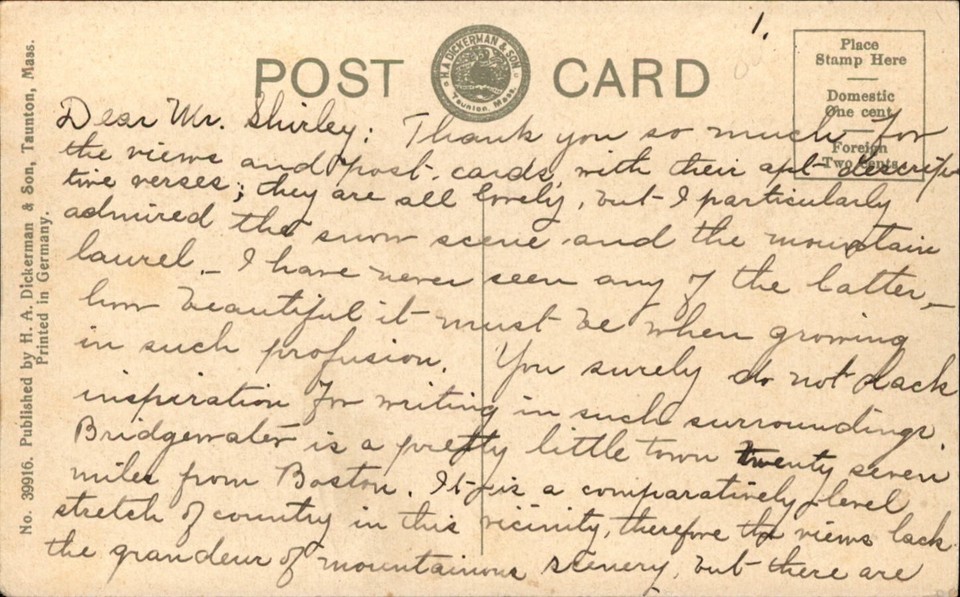 1.
POST CARD
H.A. DICKERMAN & SON
Taunton, Mass.
Place
Stamp Here
Domestic
One cent
Foreign
Two Cents
No. 39916. Published by H. A. Dickerman & Son, Taunton, Mass.
Printed in Germany.
Dear Mr. Shirley: Thank you so much for
the views and post-cards, with their apt descrip
tive verses; they are all lovely, but I particularly
admired the snow scene and the mountain
laurel. – I have never seen any of the latter, –
how beautiful it must be when growing
in such profusion. You surely do not lack
inspiration for writing in such surroundings.
Bridgewater is a pretty little town twenty seven
miles from Boston. It is a comparatively level
stretch of country in this vicinity, therefore the views lack
the grandeur of mountainous scenery, but there are